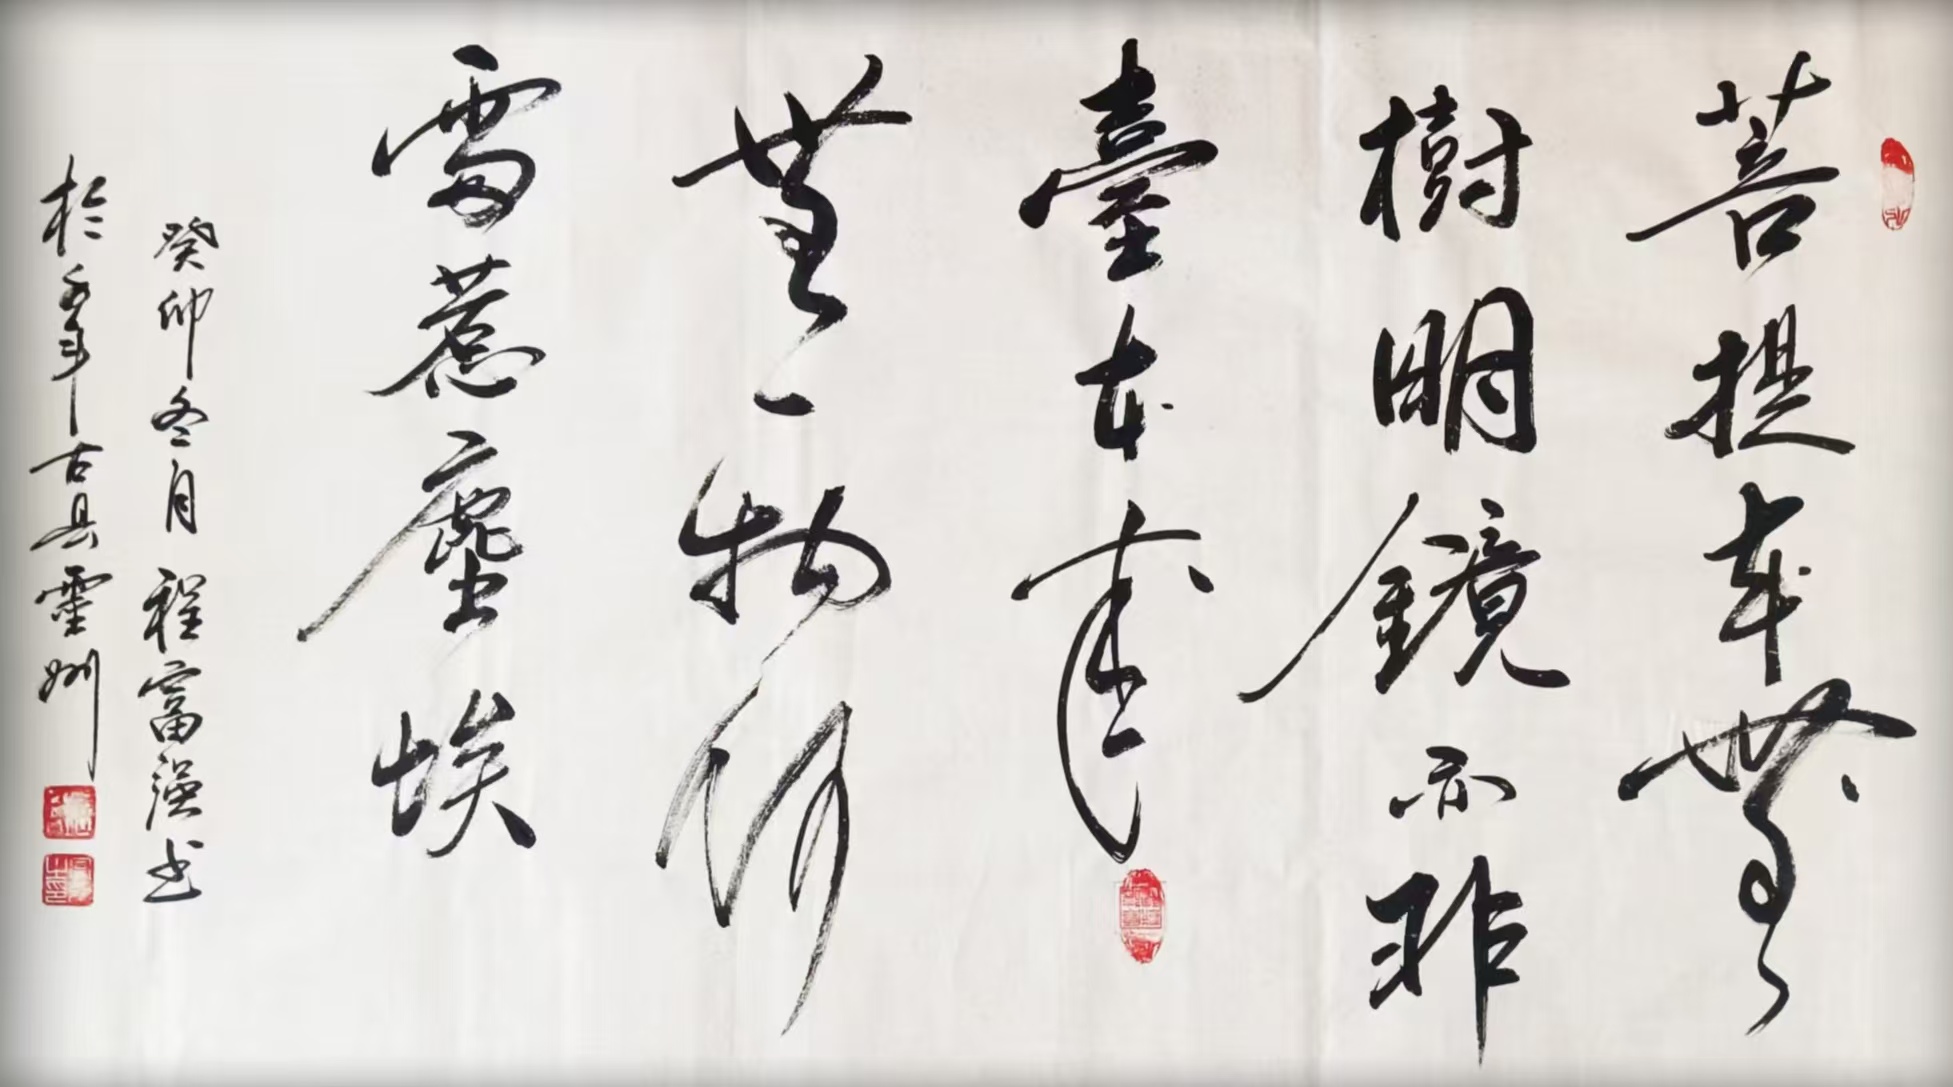 菩提本無
樹明鏡亦非
臺本来
無一物何
處惹塵埃
癸卯冬月 程富强书
於千年古县霊州